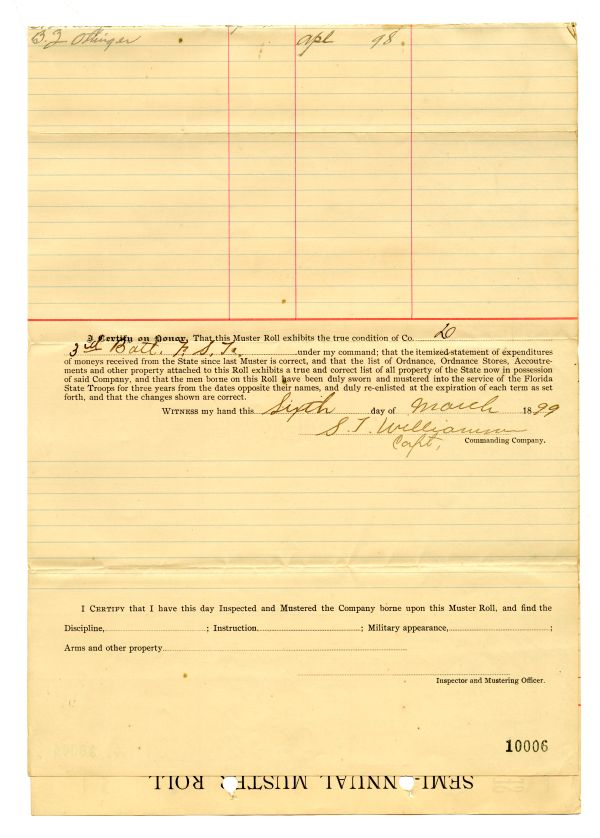 B. Z Ottinger apl 98
I Certify on Honor, That this Muster Roll exhibits the true condition of Co. D
3rd Batt. F. S. T. under my command; that the itemized statement of expenditures
of moneys received from the State since last Muster is correct, and that the list of Ordnance, Ordnance Stores, Accoutre-
ments and other property attached to this Roll exhibits a true and correct list of all property of the State now in possession
of said Company, and that the men borne on this Roll have been duly sworn and mustered into the service of the Florida
State Troops for three years from the dates opposite their names, and duly re-enlisted at the expiration of each term as set
forth, and that the changes shown are correct.
WITNESS my hand this Sixth day of March 1899
S. T. Williamson
Capt, Commanding Company.
I CERTIFY that I have this day Inspected and Mustered the Company borne upon this Muster Roll, and find the
Discipline, ; Instruction ; Military appearance, ;
Arms and other property
Inspector and Mustering Officer.
10006
SEMI-ANNUAL MUSTER ROLL